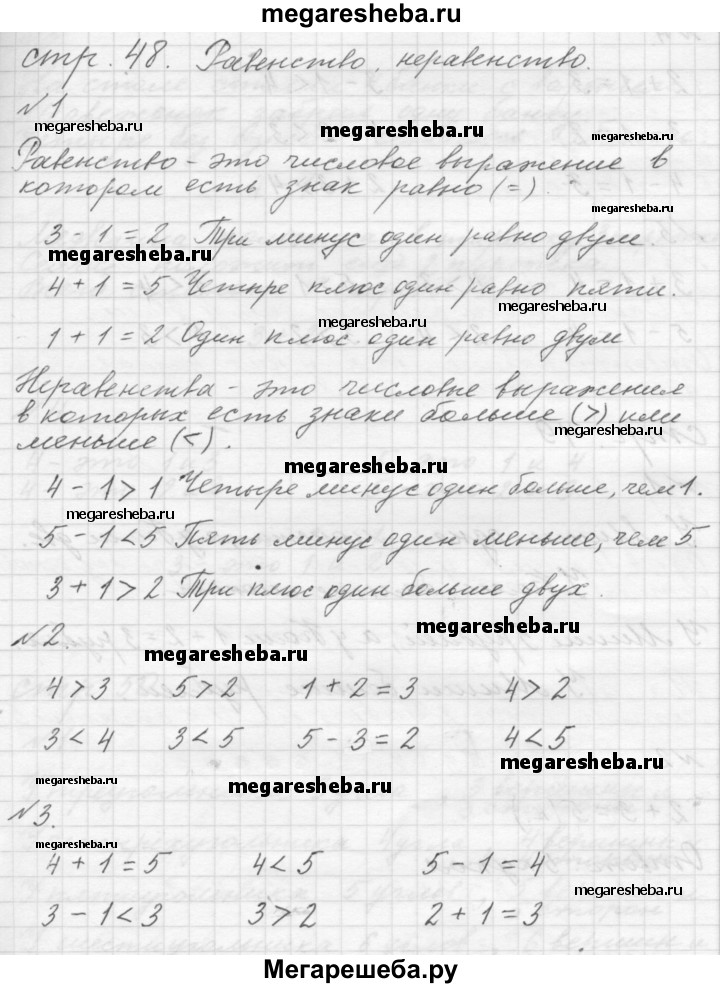 megaresheba.ru
стр. 48. Равенство, неравенство.
№1
megaresheba.ru
megaresheba.ru
megaresheba.ru
Равенство - это числовое выражение в
котором есть знак равно (=).
megaresheba.ru
3 - 1 = 2 Три минус один равно двум.
megaresheba.ru
4 + 1 = 5 Четыре плюс один равно пяти.
megaresheba.ru
megaresheba.ru
1 + 1 = 2 Один плюс один равно двум
Неравенства - это числовые выражения
в которых есть знаки больше (>) или
меньше (<).
megaresheba.ru
megaresheba.ru
4 - 1 > 1 Четыре минус один больше, чем 1.
megaresheba.ru
5 - 1 < 5 Пять минус один меньше, чем 5
megaresheba.ru
3 + 1 > 2 Три плюс один больше двух.
megaresheba.ru
№2.
megaresheba.ru
4 > 3 5 > 2 1 + 2 = 3 4 > 2
3 < 4 3 < 5 5 - 3 = 2 4 < 5
megaresheba.ru
megaresheba.ru
№3.
megaresheba.ru
4 + 1 = 5 4 < 5 5 - 1 = 4
megaresheba.ru
3 - 1 < 3 3 > 2 2 + 1 = 3
Мегарешеба.ру